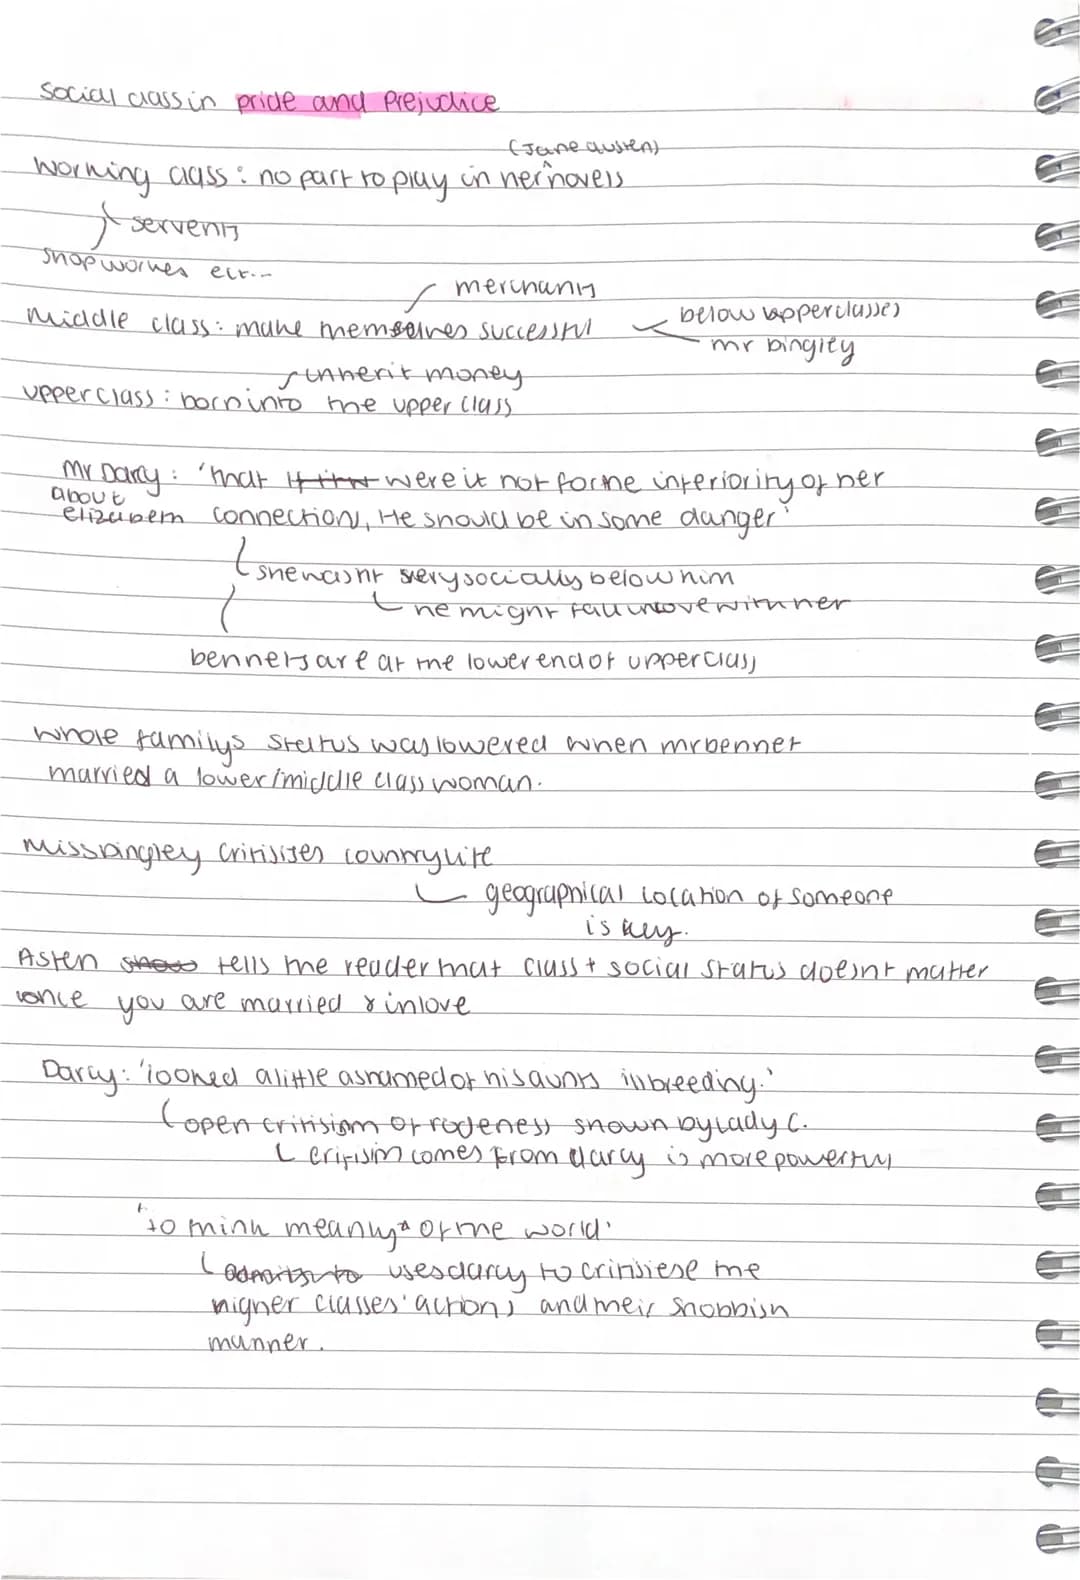 Social class in pride and Prejudice
(Jane austen)
working class: no part to play in her novels
servents
shop workes ect...
merchants
Middle class: make themselves successful
below upperclasses
mr bingley
inherit money
upper class: born into the upper class
Mr Darcy: 'that were it not for the inferiority of her
about
elizabeth connection, He should be in some danger'
she wasnt very socially below him
he might fall in love with her
bennets are at the lower end of upperclass
whole familys status was lowered when mr bennet
married a lower/middle class woman.
Miss bingley critisises country life
geographical location of someone
is key.
Asten tells the reader that class + social status doesnt matter
once you are married & inlove
Darcy: 'looked a little ashamed of his aunts ill breeding.'
open critisism of rudeness shown by lady C.
critisim comes from darcy is more powerful
'to think meanly of the world'
uses darcy to critisiese the
higher classes' actions and their snobbish
manner.